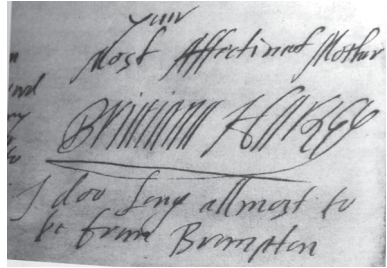 your
Most Affectinat Mother
Brilliana Harley
I doo long allmost to
be from Brompton